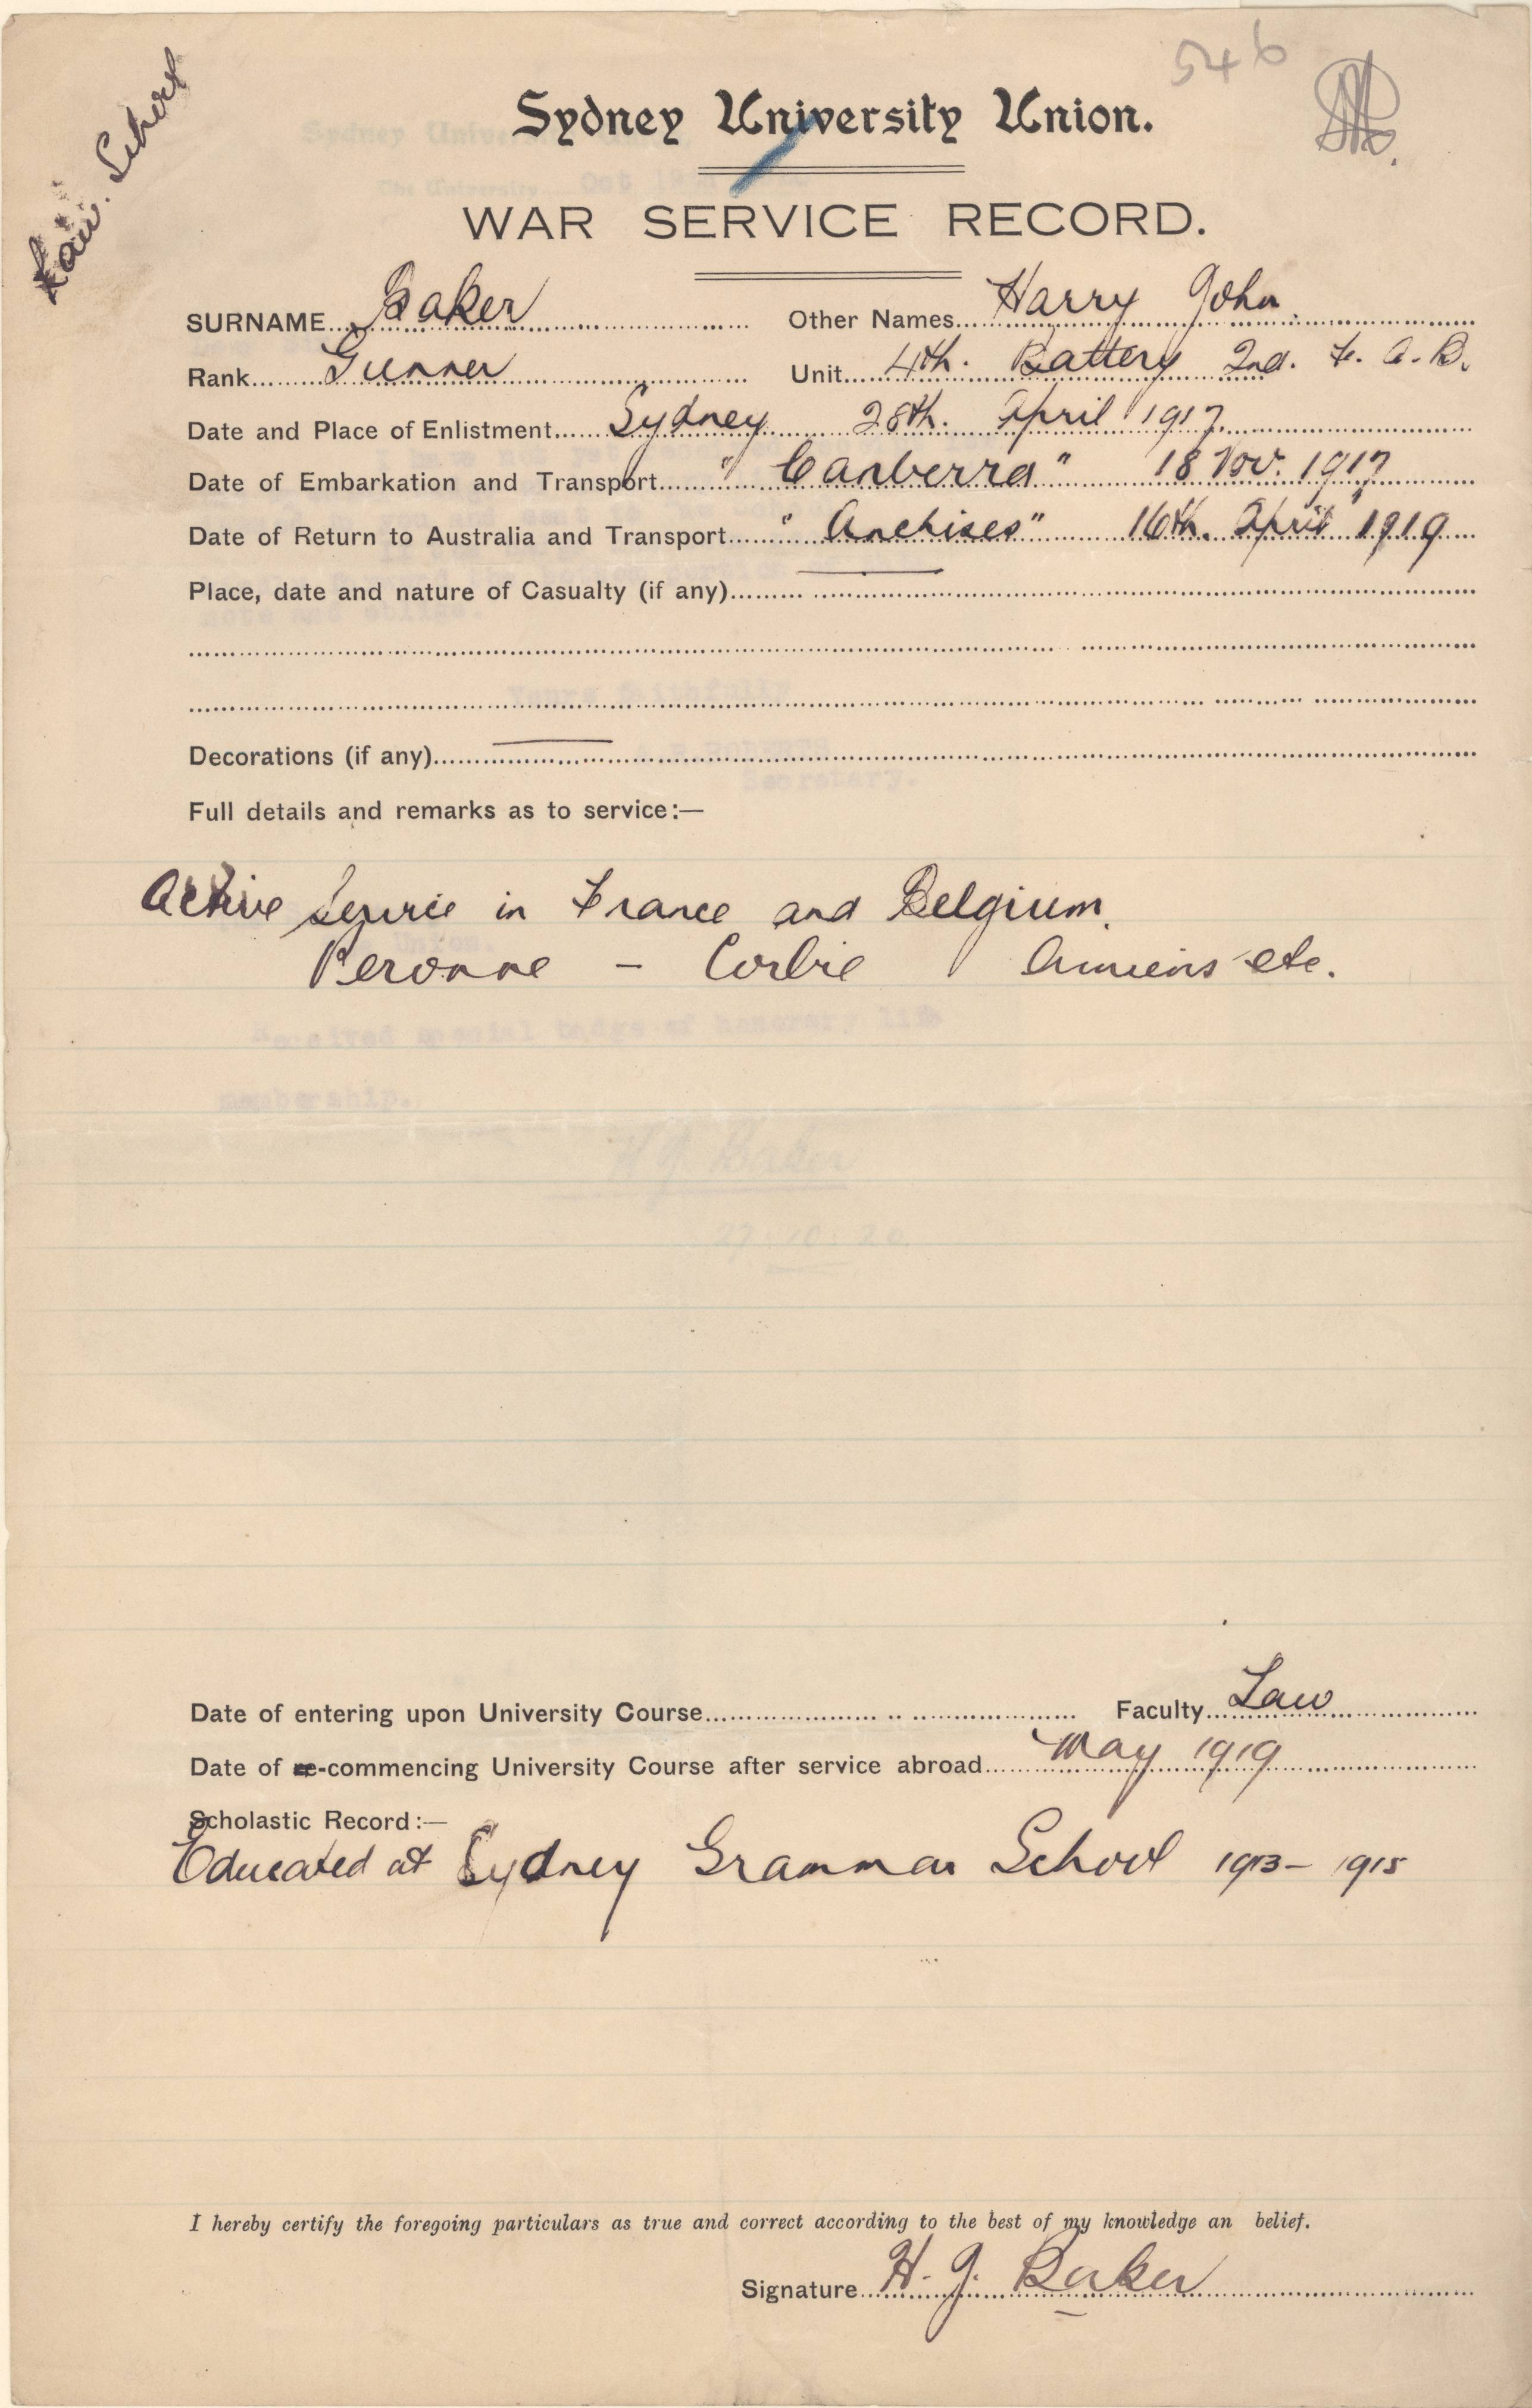 546
Law. School
Sydney University Union.
WAR SERVICE RECORD.
SURNAME Baker Other Names Harry John.
Rank Gunner Unit 4th. Battery 2nd. F. A. B.
Date and Place of Enlistment Sydney 28th. April 1917.
Date of Embarkation and Transport "Canberra" 18 Nov. 1917
Date of Return to Australia and Transport "Anchises" 16th. April 1919
Place, date and nature of Casualty (if any)
Decorations (if any)
Full details and remarks as to service:—
Active Service in France and Belgium.
Peronne – Corbie Amiens etc.
Received special badge of honorary life
membership.
H J Baker
27.10.20
Date of entering upon University Course Faculty Law
Date of re-commencing University Course after service abroad May 1919
Scholastic Record:—
Educated at Sydney Grammar School 1913 – 1915
I hereby certify the foregoing particulars as true and correct according to the best of my knowledge an belief.
Signature H. J. Baker